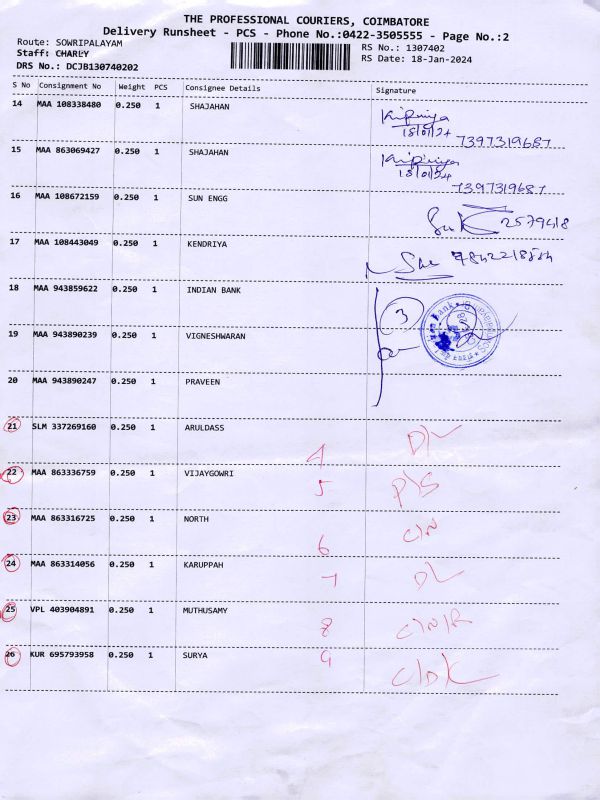 THE PROFESSIONAL COURIERS, COIMBATORE
Delivery Runsheet - PCS - Phone No.:0422-3505555 - Page No.:2
Route: SOWRIPALAYAM
RS No.: 1307402
Staff: CHARLY
RS Date: 18-Jan-2024
DRS No.: DCJB130740202
S No Consignment No Weight PCS Consignee Details Signature
14 MAA 108338480 0.250 1 SHAJAHAN
18/01/24
7397319687
15 MAA 863069427 0.250 1 SHAJAHAN
18/01/24
7397319687
16 MAA 108672159 0.250 1 SUN ENGG
2579418
17 MAA 108443049 0.250 1 KENDRIYA
18 MAA 943859622 0.250 1 INDIAN BANK
3
19 MAA 943890239 0.250 1 VIGNESHWARAN
20 MAA 943890247 0.250 1 PRAVEEN
21 SLM 337269160 0.250 1 ARULDASS
4 D/L
22 MAA 863336759 0.250 1 VIJAYGOWRI
5 P/S
23 MAA 863316725 0.250 1 NORTH
6 C/N
24 MAA 863314056 0.250 1 KARUPPAH
7 DL
25 VPL 403904891 0.250 1 MUTHUSAMY
8 C/N/R
26 KUR 695793958 0.250 1 SURYA
9 C/D/K